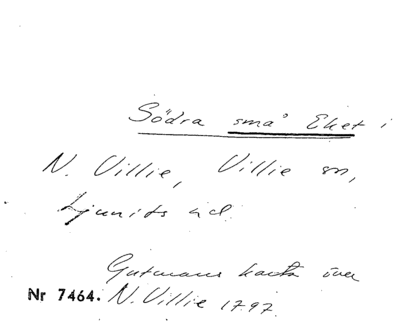 Södra små Eket i
N. Villie, Villie sn,
Ljunits hd.
Gutmans karta över
Nr 7464. N. Villie 1797.